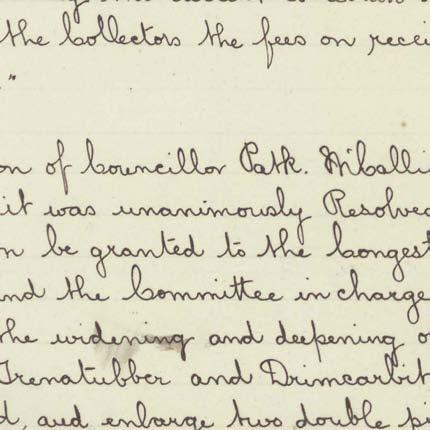 the Collectors the fees on recei
"
on of Councillor Patk. McCalli
it was unanimously Resolved
n be granted to the Congest
and the Committee in charge
the widening and deepening o
Trenatubber and Drimcarbit
d, and enlarge two double pi